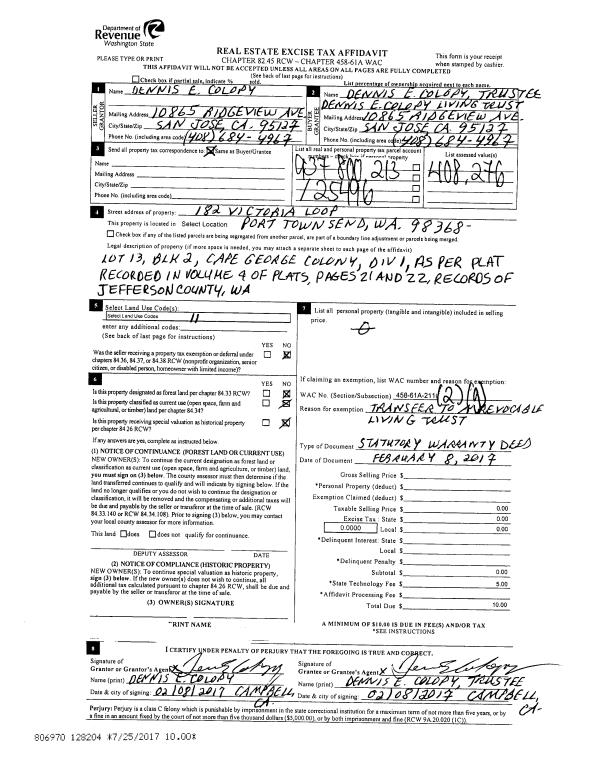 Department of
Revenue
Washington State
REAL ESTATE EXCISE TAX AFFIDAVIT
PLEASE TYPE OR PRINT
CHAPTER 82.45 RCW – CHAPTER 458-61A WAC
This form is your receipt
when stamped by cashier.
THIS AFFIDAVIT WILL NOT BE ACCEPTED UNLESS ALL AREAS ON ALL PAGES ARE FULLY COMPLETED
(See back of last page for instructions)
Check box if partial sale, indicate % sold.
List percentage of ownership acquired next to each name.
1
SELLER GRANTOR
Name DENNIS E. COLOPY
Mailing Address 10865 RIDGEVIEW AVE.
City/State/Zip SAN JOSE, CA. 95127
Phone No. (including area code) (408) 684-4967
2
BUYER GRANTEE
Name DENNIS E. COLOPY, TRUSTEE
DENNIS E. COLOPY LIVING TRUST
Mailing Address 10865 RIDGEVIEW AVE.
City/State/Zip SAN JOSE, CA. 95127
Phone No. (including area code) (408) 684-4967
3
Send all property tax correspondence to: Same as Buyer/Grantee
Name
Mailing Address
City/State/Zip
Phone No. (including area code)
List all real and personal property tax parcel account
numbers – check box if personal property
937 800 213
List assessed value(s)
408,276
4
Street address of property: 182 VICTORIA LOOP
This property is located in Select Location PORT TOWNSEND, WA. 98368-
Check box if any of the listed parcels are being segregated from another parcel, are part of a boundary line adjustment or parcels being merged.
Legal description of property (if more space is needed, you may attach a separate sheet to each page of the affidavit)
LOT 13, BLK 2, CAPE GEORGE COLONY, DIV 1, AS PER PLAT
RECORDED IN VOLUME 4 OF PLATS, PAGES 21 AND 22, RECORDS OF
JEFFERSON COUNTY, WA
5
Select Land Use Code(s):
Select Land Use Codes 11
enter any additional codes:
(See back of last page for instructions)
YES NO
Was the seller receiving a property tax exemption or deferral under
chapters 84.36, 84.37, or 84.38 RCW (nonprofit organization, senior
citizen, or disabled person, homeowner with limited income)?
6
YES NO
Is this property designated as forest land per chapter 84.33 RCW?
Is this property classified as current use (open space, farm and
agricultural, or timber) land per chapter 84.34?
Is this property receiving special valuation as historical property
per chapter 84.26 RCW?
If any answers are yes, complete as instructed below.
(1) NOTICE OF CONTINUANCE (FOREST LAND OR CURRENT USE)
NEW OWNER(S): To continue the current designation as forest land or
classification as current use (open space, farm and agriculture, or timber) land,
you must sign on (3) below. The county assessor must then determine if the
land transferred continues to qualify and will indicate by signing below. If the
land no longer qualifies or you do not wish to continue the designation or
classification, it will be removed and the compensating or additional taxes will
be due and payable by the seller or transferor at the time of sale. (RCW
84.33.140 or RCW 84.34.108). Prior to signing (3) below, you may contact
your local county assessor for more information.
This land does does not qualify for continuance.
DEPUTY ASSESSOR DATE
(2) NOTICE OF COMPLIANCE (HISTORIC PROPERTY)
NEW OWNER(S): To continue special valuation as historic property,
sign (3) below. If the new owner(s) does not wish to continue, all
additional tax calculated pursuant to chapter 84.26 RCW, shall be due and
payable by the seller or transferor at the time of sale.
(3) OWNER(S) SIGNATURE
PRINT NAME
7
List all personal property (tangible and intangible) included in selling
price.
If claiming an exemption, list WAC number and reason for exemption:
WAC No. (Section/Subsection) 458-61A-211
Reason for exemption TRANSFER TO A REVOCABLE
LIVING TRUST
Type of Document STATUTORY WARRANTY DEED
Date of Document FEBRUARY 8, 2017
Gross Selling Price $
*Personal Property (deduct) $
Exemption Claimed (deduct) $
Taxable Selling Price $ 0.00
Excise Tax : State $ 0.00
0.0000 Local $ 0.00
*Delinquent Interest: State $
Local $
*Delinquent Penalty $
Subtotal $ 0.00
*State Technology Fee $ 5.00
*Affidavit Processing Fee $
Total Due $ 10.00
A MINIMUM OF $10.00 IS DUE IN FEE(S) AND/OR TAX
*SEE INSTRUCTIONS
8
I CERTIFY UNDER PENALTY OF PERJURY THAT THE FOREGOING IS TRUE AND CORRECT.
Signature of
Grantor or Grantor's Agent X
Name (print) DENNIS E. COLOPY
Date & city of signing: 02/08/2017 CAMPBELL,
CA.
Signature of
Grantee or Grantee's Agent X
Name (print) DENNIS E. COLOPY, TRUSTEE
Date & city of signing: 02/08/2017 CAMPBELL,
CA.
Perjury: Perjury is a class C felony which is punishable by imprisonment in the state correctional institution for a maximum term of not more than five years, or by
a fine in an amount fixed by the court of not more than five thousand dollars ($5,000.00), or by both imprisonment and fine (RCW 9A.20.020 (1C)).
806970 128204 *7/25/2017 10.00*